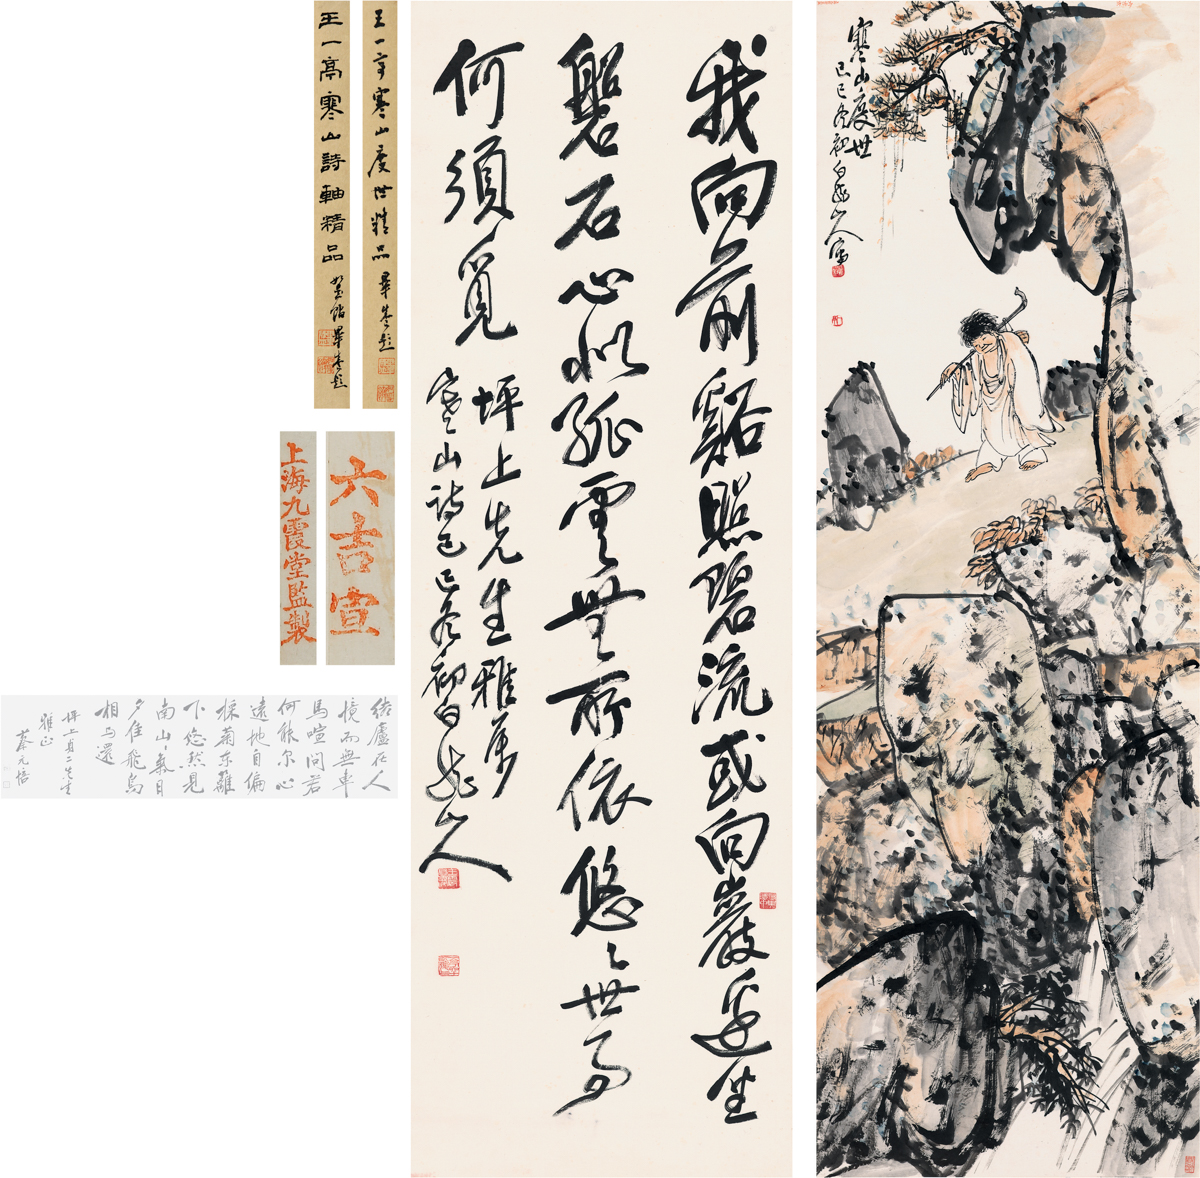 寒山度世
己巳冬初白龍山人寫
我向前谿照碧流或向巖邊坐
磐石心似孤雲無所依悠〻世事
何須覓
坪上先生雅属
寒山詩己巳冬初白龍山人
王一亭寒山度世精品
題
王一亭寒山詩軸精品
題
六吉宣
上海九霞堂監製
結廬在人
境而無車
馬喧問君
何能尔心
遠地自偏
採菊东籬
下悠然見
南山〻氣日
夕佳飛鳥
相与還
坪上貞二先生
雅正
蔡元培